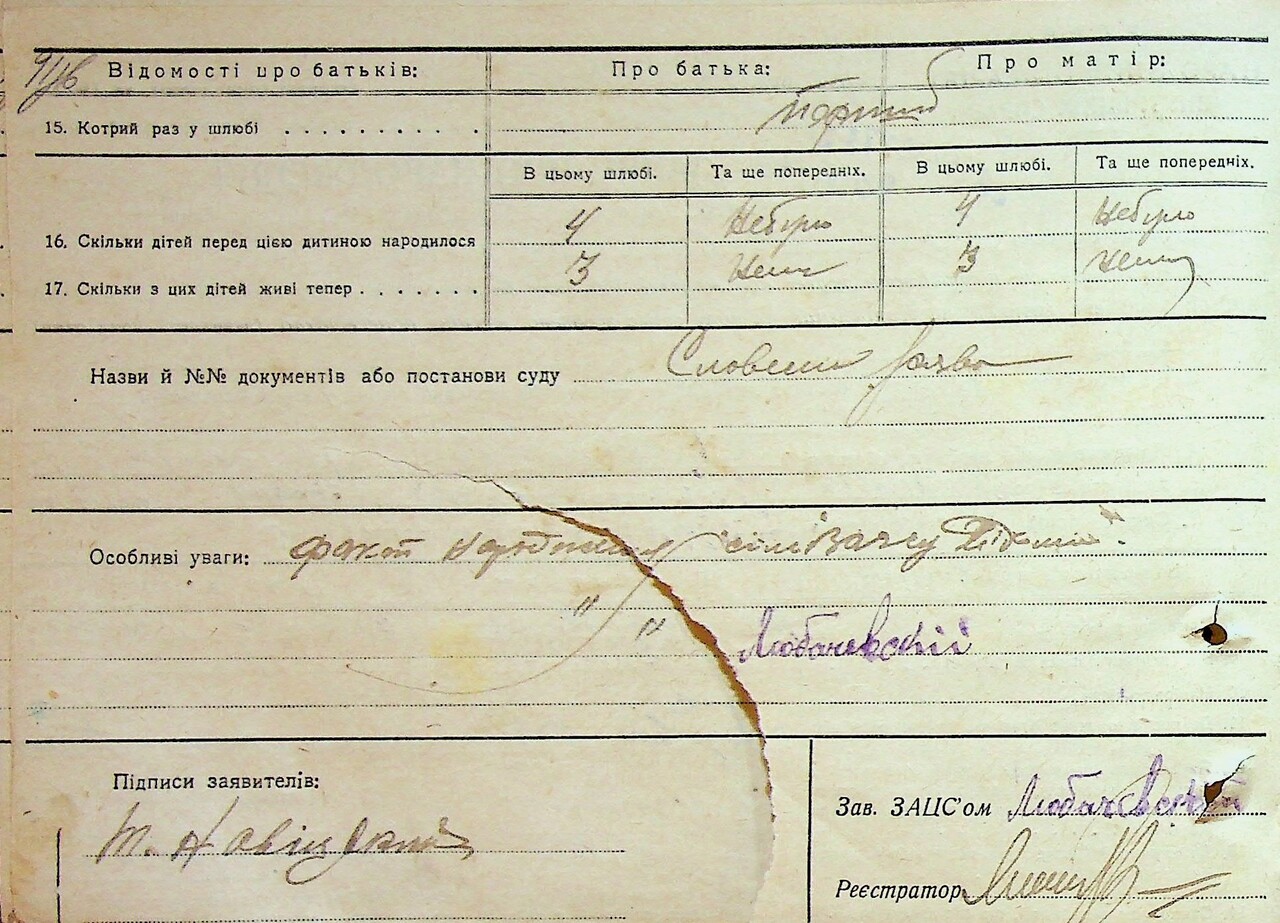 Відомості про батьків: Про батька: Про матір:
15. Котрий раз у шлюбі . . . . . . . . . . перший
В цьому шлюбі. Та ще попередніх. В цьому шлюбі. Та ще попередніх.
16. Скільки дітей перед цією дитиною народилося 4 Небуло 4 Небуло
17. Скільки з цих дітей живі тепер . . . . . . . 3 Нема 3 Нема
Назви й №№ документів або постанови суду Словесна заява
Особливі уваги: факт народження
" "
Любачевский
Підписи заявителів:
Зав. ЗАЦС'ом Любачевский
Т. Навіцький
Реєстратор